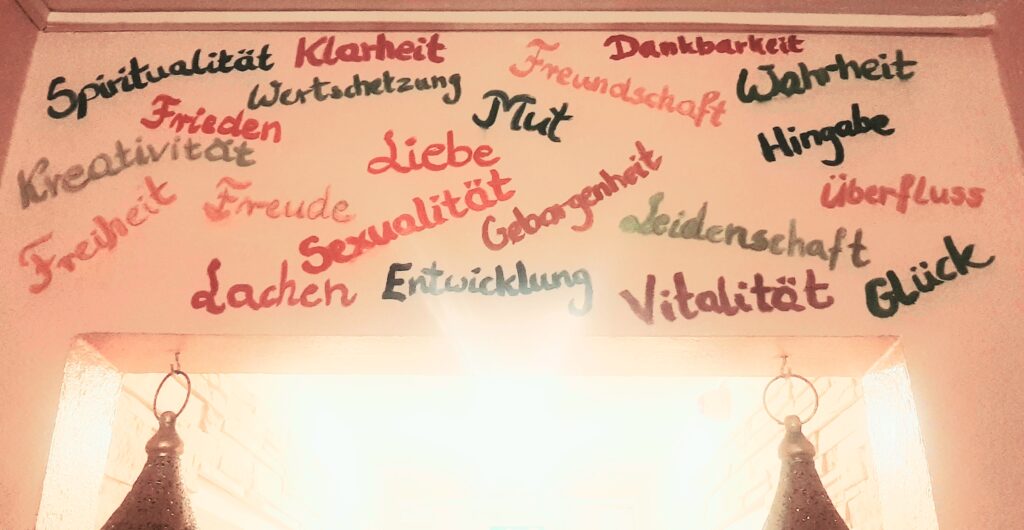 Spiritualität
Klarheit
Freundschaft
Dankbarkeit
Wahrheit
Wertschetzung
Frieden
Mut
Hingabe
Kreativität
Liebe
Freiheit
Freude
Sexualität
Geborgenheit
Überfluss
Leidenschaft
Lachen
Entwicklung
Vitalität
Glück